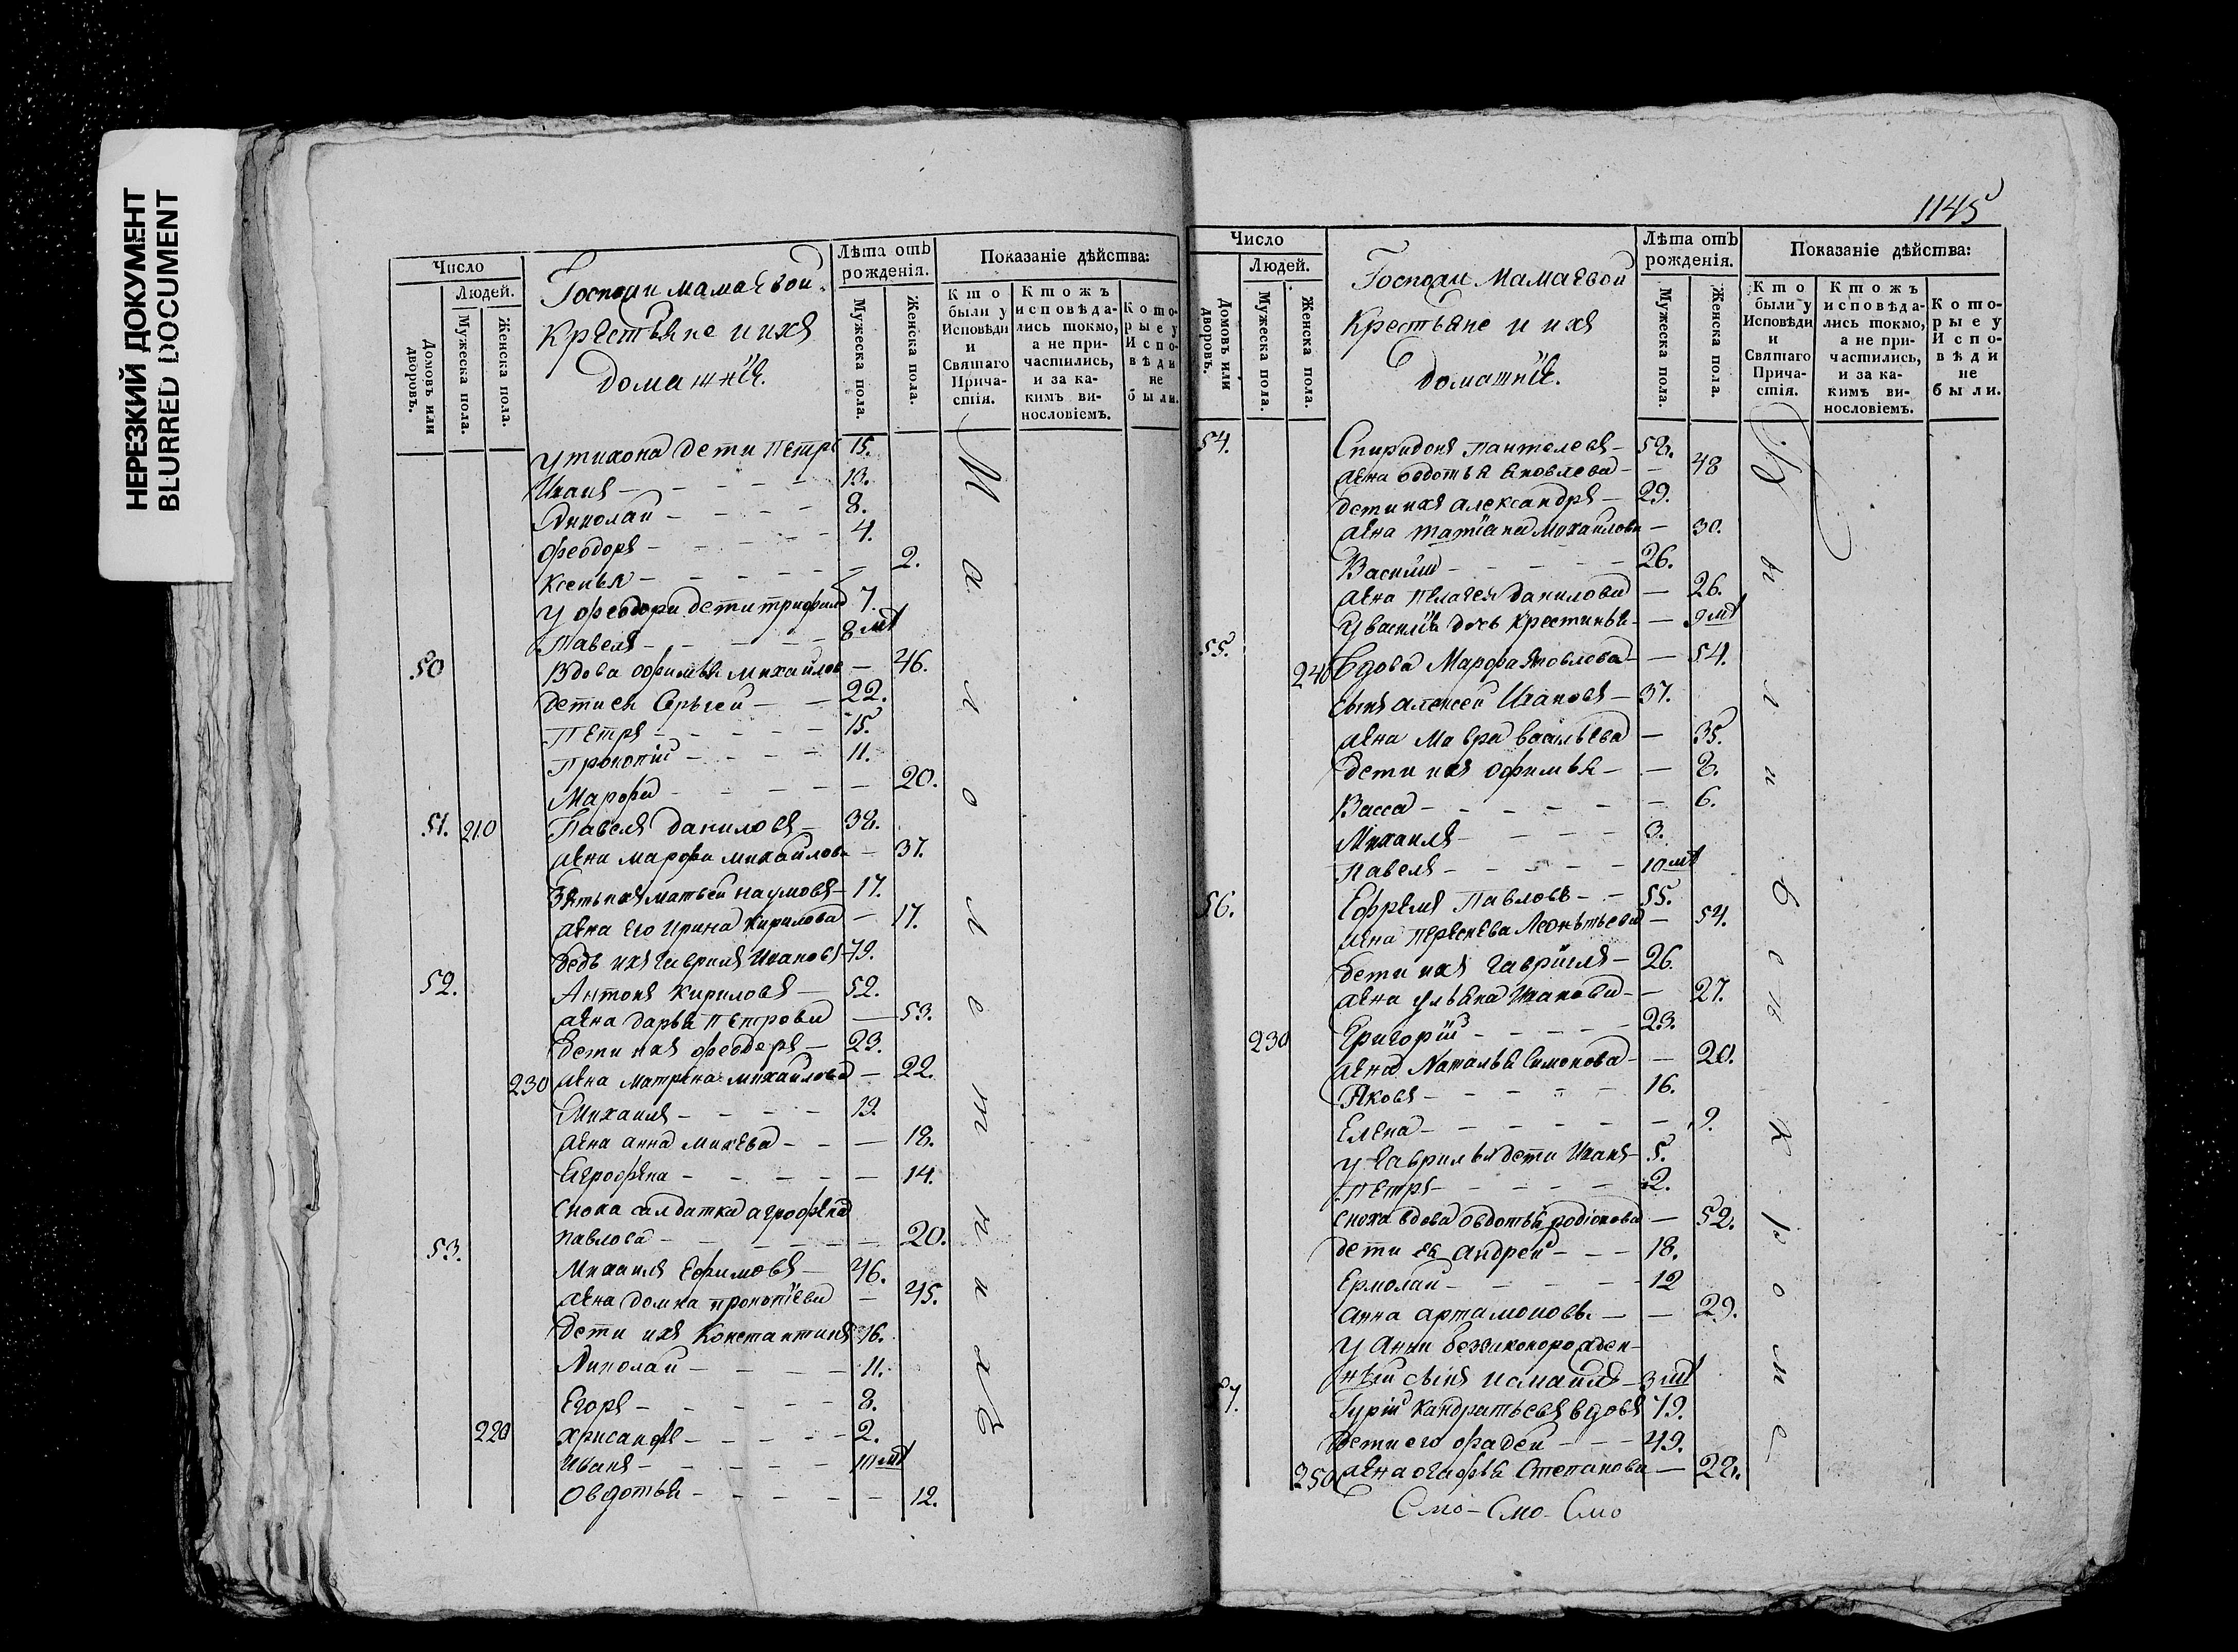 НЕРЕЗКИЙ ДОКУМЕНТ
BLURRED DOCUMENT
Число
Людей.
Домовъ или дворовъ.
Мужеска пола.
Женска пола.
Госпожи мамаевой
крестьяне и ихъ
домашнїе.
Лѣта отъ рожденія.
Мужеска пола.
Женска пола.
Показаніе дѣйства:
Кто были у Исповѣди и Святаго Причастія.
Ктожъ исповѣдались токмо, а не причастились, и за какимъ винословіемъ.
Которые у Исповѣди не были.
у тихона дети петръ 15.
Иванъ — 13.
Николай — 8.
Феодоръ — 4.
Ксенья — 2.
у феодора дети трифилъ 7.
Павелъ — 8 мц
50 Вдова офимья михайлов — 46.
дети ея Сергей — 22.
Петръ — 15.
Прокопій — 11.
Марфа — 20.
51. 210 Павелъ даниловъ — 38.
жена марфа михайлова — 37.
Зять ихъ матвей наумовъ — 17.
жена его ирина Кирилова — 17.
дедъ ихъ гаврилъ Ивановъ 79.
52. Антонъ кириловъ — 52.
жена дарья петрова — 53.
дети ихъ феодоръ — 23.
230 жена матрена михайлова — 22.
Михаилъ — 19.
жена анна михева — 18.
Агрофена — 14.
сноха салдатка агрофена
павлова — 20.
53. Михаилъ Ефимовъ — 46.
жена домна прокопїева — 45.
дети ихъ Константинъ 16.
Николай — 11.
Егоръ — 8.
220 Хрисанфъ — 2.
Иванъ — 10 мц
Овдотья — 12.
М а л о л е т н и х ъ
1145
Число
Людей.
Домовъ или дворовъ.
Мужеска пола.
Женска пола.
Госпожи Мамаевой
крестьяне и ихъ
домашнїе.
Лѣта отъ рожденія.
Мужеска пола.
Женска пола.
Показаніе дѣйства:
Кто были у Исповѣди и Святаго Причастія.
Ктожъ исповѣдались токмо, а не причастились, и за какимъ винословіемъ.
Которые у Исповѣди не были.
54. Спиридонъ пантелевъ — 58.
жена овдотья яковлева — 48
дети ихъ александръ — 29.
жена татїана Михайлова — 30.
Василїй — 26.
жена пелагея данилова — 26.
У василїя дочь крестинья — 9 мц
55. 240 Вдова Марфа Яковлева — 54.
сынъ алексей Ивановъ — 37.
жена Мавра васильева — 35.
дети ихъ офимья — 8.
Васса — 6.
Михаилъ — 3.
павелъ — 10 мц
56. Ефремъ Павловъ — 55.
жена Пересковья Леонтьева — 54.
дети ихъ гаврїилъ — 26.
жена ульяна Иванова — 27.
230 Григорїй — 23.
жена Наталья Симонова — 20.
Яковъ — 16.
Елена — 9.
у гаврилы дети Иванъ 5.
Петръ — 2.
сноха вдова овдотья родіонова — 52.
дети ея андрей — 18.
Ермолай — 12
анна артамонова — 29.
у анны беззаконорожден-
ный сынъ исмаилъ — 3 мц
57. Гурій Кандратьевъ вдовъ 79.
дети его фадей — 49.
250 жена агафья Степанова — 28.
Были бес кроме
Смо - Смо - Смо